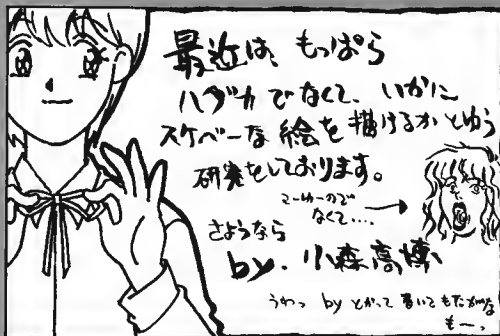 最近は、もっぱら
ハダカでなくて、いかに
スケベーな絵を描けるかとゆう
研究をしております。
こーゆーので
なくて....
さようなら
by. 小森高博
うわっ byとかって書いてもた
もー。